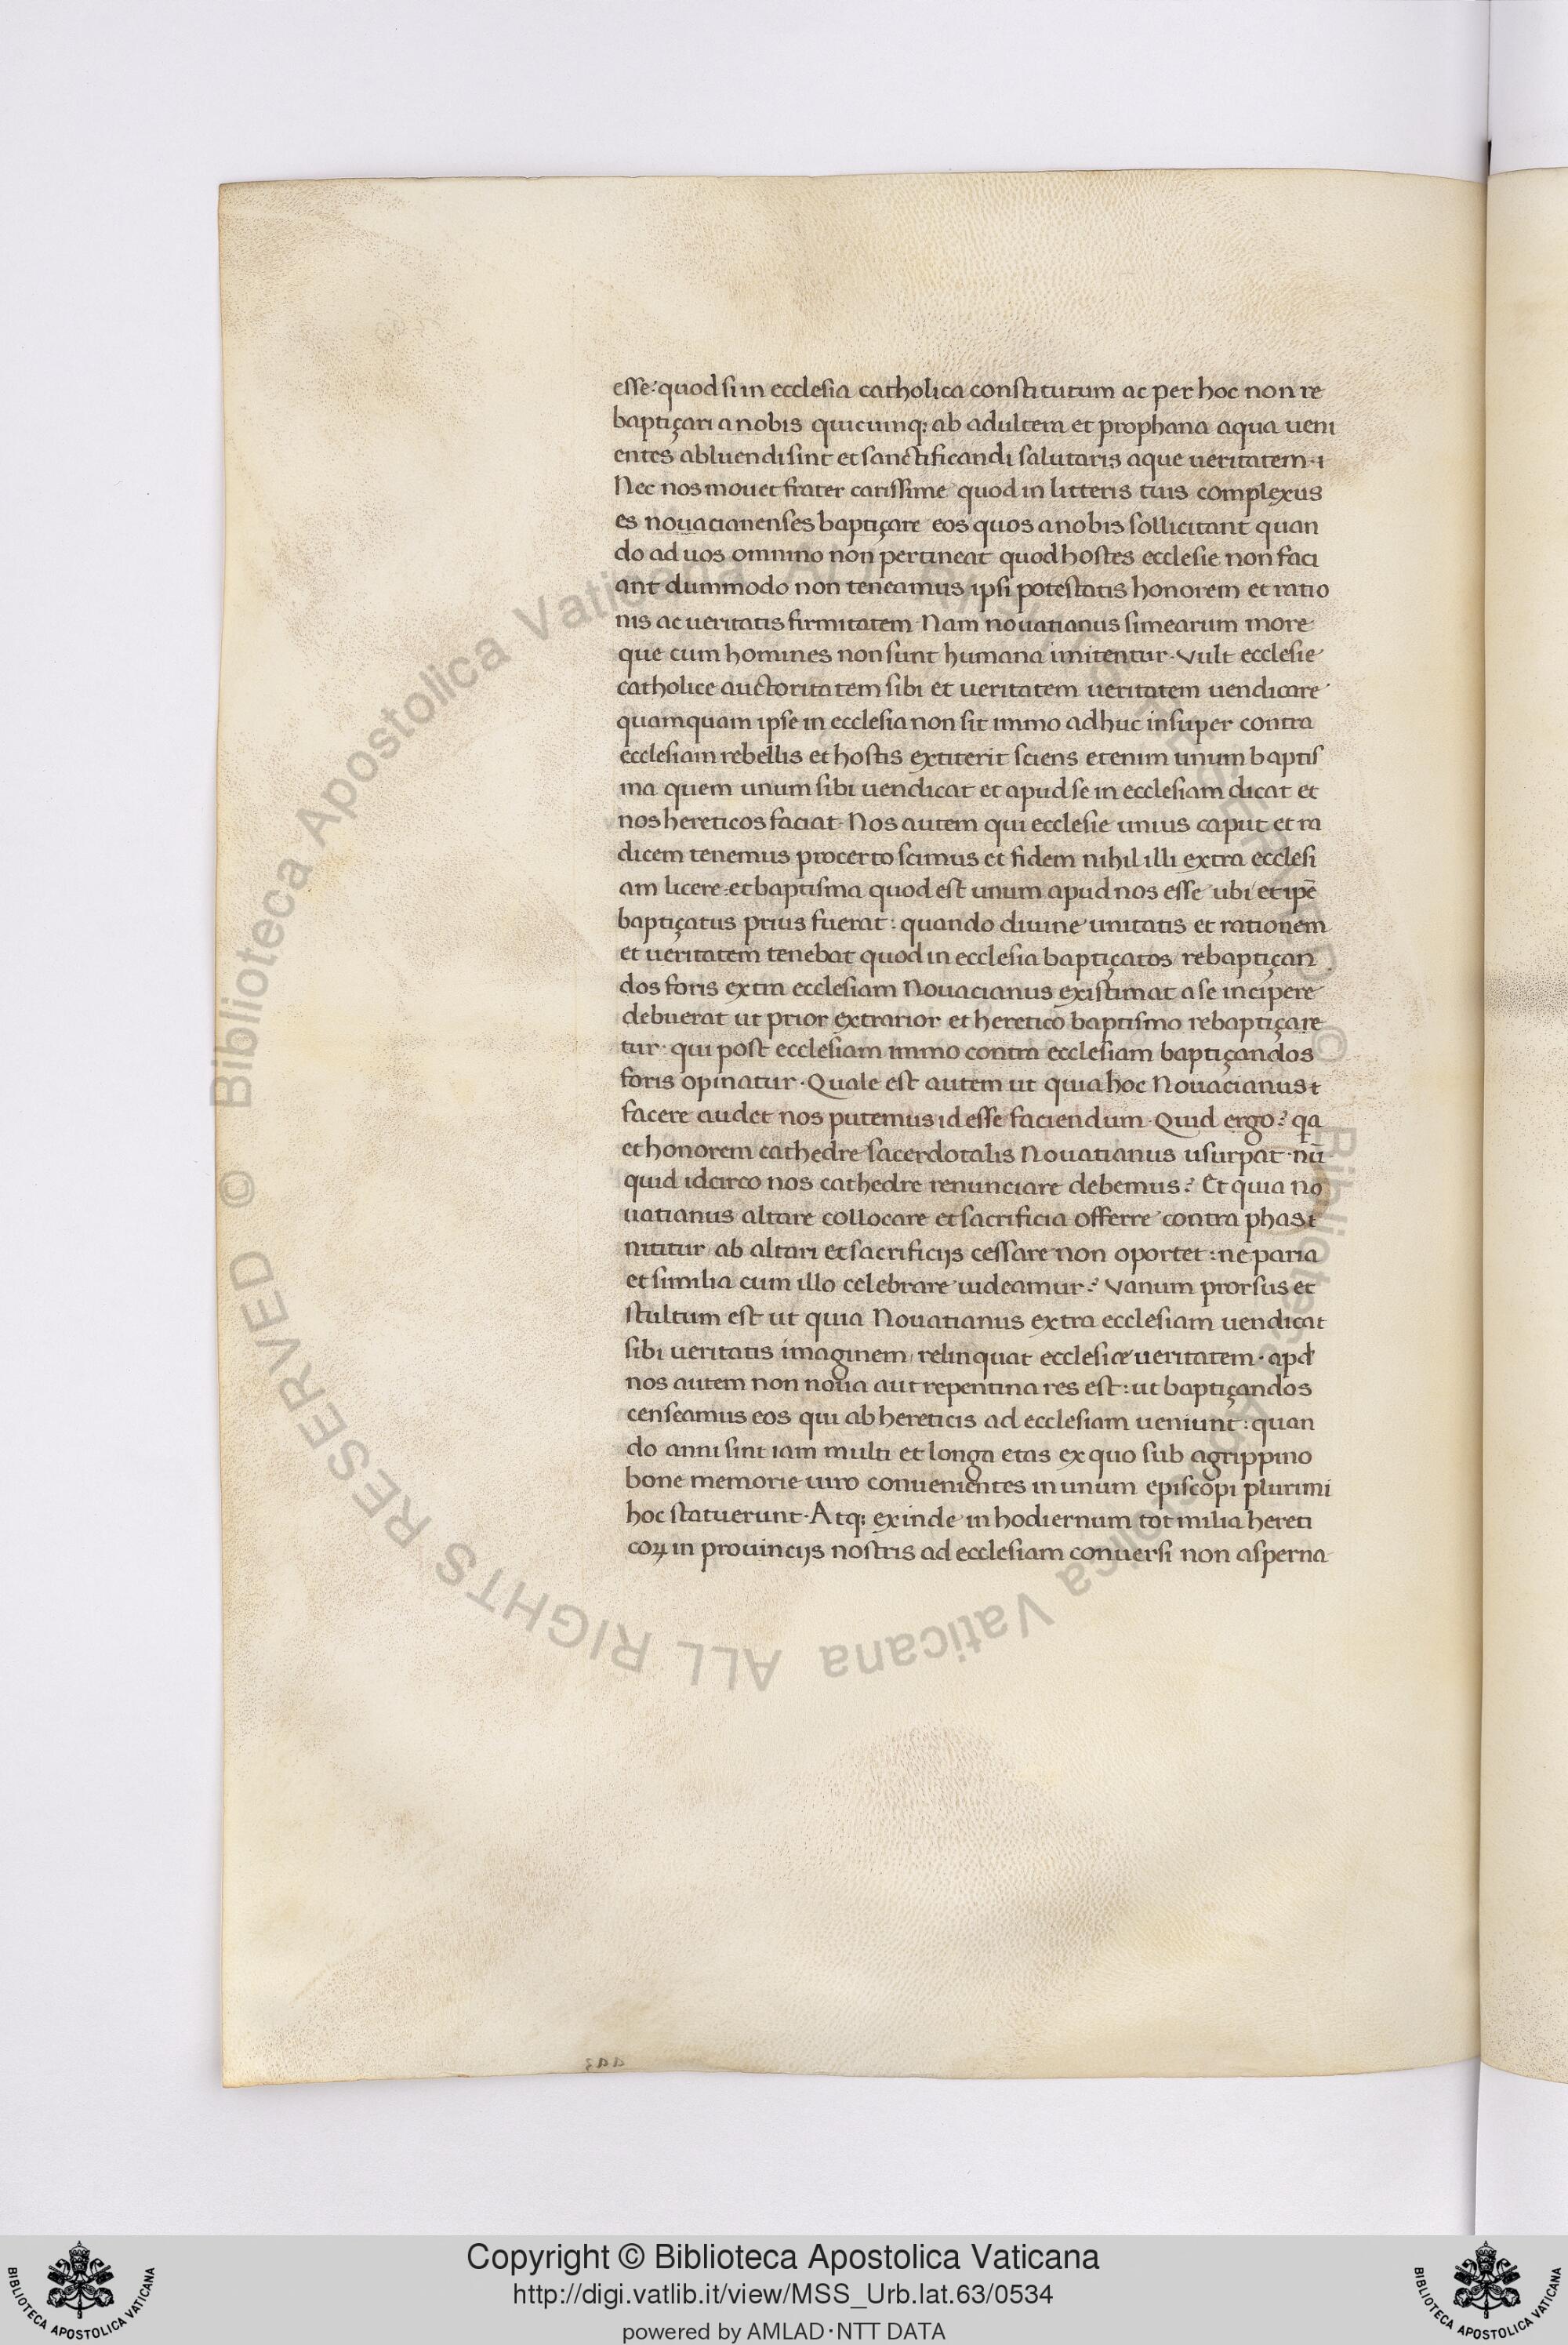 esse: quod si in ecclesia catholica constitutum ac per hoc non re
baptiçari a nobis quicunq; ab adultera et prophana aqua ueni
entes abluendi sint et sanctificandi salutaris aque ueritatem·
Nec nos mouet frater carissime quod in litteris tuis complexus
es nouacianenses baptiçare eos quos a nobis sollicitant quan
do ad uos omnino non pertineat quod hostes ecclesie non faci
ant dummodo non teneamus ipsi potestatis honorem et ratio
nis ac ueritatis firmitatem· Nam nouatianus simearum more
que cum homines non sunt humana imitentur· Vult ecclesie
catholice auctoritatem sibi et ueritatem ueritatem uendicare
quamquam ipse in ecclesia non sit immo adhuc insuper contra
ecclesiam rebellis et hostis extiterit sciens etenim unum baptis
ma quem unum sibi uendicat et apud se in ecclesiam dicat et
nos hereticos faciat· Nos autem qui ecclesie unius caput et ra
dicem tenemus procerto scimus et fidem nihil illi extra ecclesi
am licere: et baptisma quod est unum apud nos esse ubi et ipē
baptiçatus prius fuerat: quando diuine unitatis et rationem
et ueritatem tenebat quod in ecclesia baptiçatos rebaptiçan
dos foris extra ecclesiam Nouacianus existimat a se incipere
debuerat ut prior extrarior et heretico baptismo rebaptiçare
tur· qui post ecclesiam immo contra ecclesiam baptiçandos
foris opinatur· Quale est autem ut quia hoc Nouacianus
facere audet nos putemus id esse faciendum· Quid ergo? qa
et honorem cathedre sacerdotalis Nouatianus usurpat· nū
quid idcirco nos cathedre renunciare debemus? Et quia no
uatianus altare collocare et sacrificia offerre contra phas
nititur ab altari et sacrificijs cessare non oportet: ne paria
et similia cum illo celebrare uideamur? Vanum prorsus et
stultum est ut quia Nouatianus extra ecclesiam uendicat
sibi ueritatis imaginem relinquat ecclesiæ ueritatem· apd
nos autem non noua aut repentina res est: ut baptiçandos
censeamus eos qui ab hereticis ad ecclesiam ueniunt: quan
do anni sint iam multi et longa etas ex quo sub agrippino
bone memorie uiro conuenientes in unum episcopi plurimi
hoc statuerunt· Atq; exinde in hodiernum tot milia hereti
coꝝ in prouincijs nostris ad ecclesiam conuersi non asperna
Copyright © Biblioteca Apostolica Vaticana
http://digi.vatlib.it/view/MSS_Urb.lat.63/0534
powered by AMLAD·NTT DATA
© Biblioteca Apostolica Vaticana ALL RIGHTS RESERVED
BIBLIOTECA APOSTOLICA VATICANA
BIBLIOTECA APOSTOLICA VATICANA